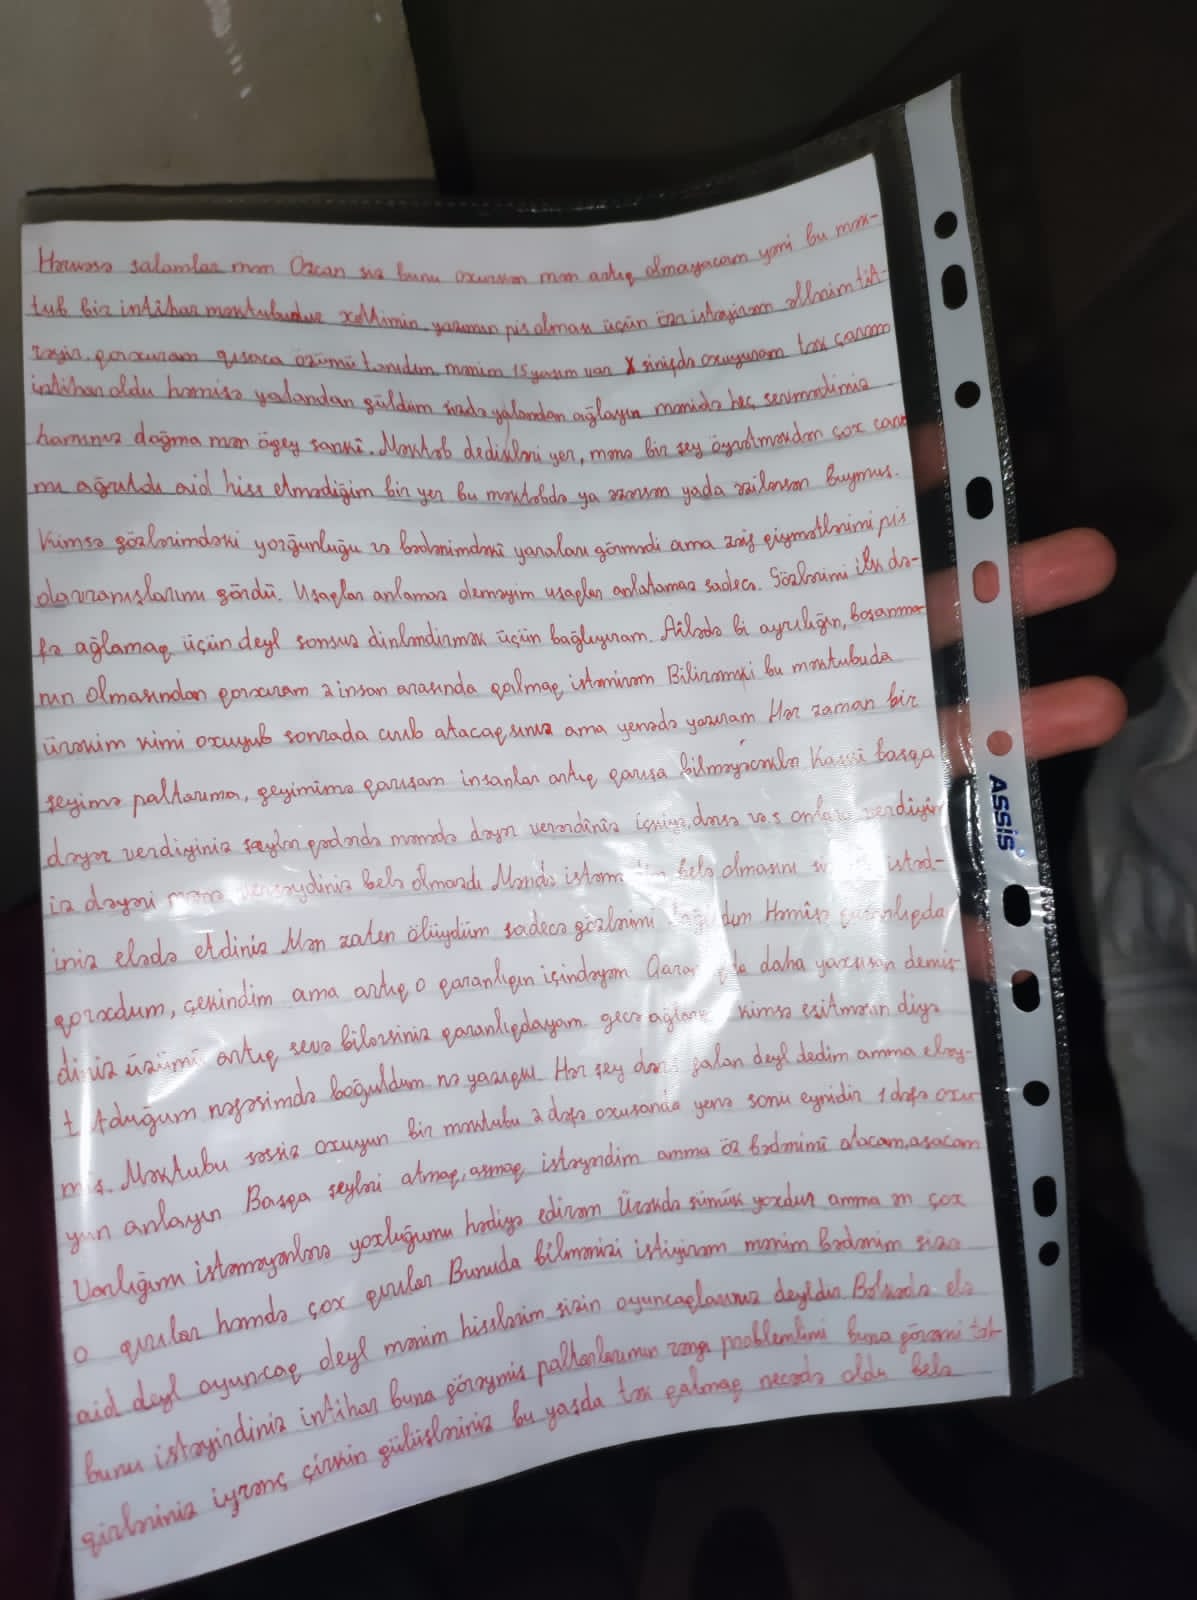 Hərkəsə salamlar mən Özcan siz bunu oxuyursan mən artıq olmayacam yəni bu mək-
tub bir intihar məktubudur xəttimin yazımın pis olması üçün üzr istəyirəm əllərim tit-
rəyir qorxuram qısaca özümü tanıdım mənim 15 yaşım var X sinifdə oxuyuram tək çarəm
intihar oldu həmişə yalandan güldüm sizdə yalandan ağlayın mənidə heç sevmədiniz
hamınız doğma mən ögey sanki. Məktəb dedikləri yer, mənə bir şey öyrətməkdən çox canı
mı ağrıtdı aid hiss etmədiğim bir yer bu məktəbdə ya əzərsən yada əzilərsən buymuş.
Kimsə gözlərimdəki yorğunluğu və bədənimdəki yaraları görmədi ama zəif qiymətlərimi pis
davranışlarımı gördü. Uşaqlar anlamaz deməyim uşaqlar anlatamaz sadecə. Gözlərimi ilk də-
fə ağlamaq üçün deyl sonsuz dinləndirmək üçün bağlıyıram. Ailədə bi ayrılığın, boşanma-
nın olmasından qorxuram 2 insan arasında qalmaq istəmirəm Bilirəmki bu məktubuda
ürəkim kimi oxuyub sonrada cırıb atacaqsınız ama yenədə yazıram Hər zaman bir
şeyimə paltarıma, geyimimə qarışan insanlar artıq qarışa bilməyəcəklər Kaşki başqa
dəyər verdiyiniz şeylər qədərdə mənədə dəyər verərdiniz içkiyə, dərsə və.s onlara verdiyin
iz dəyəri mənə versəydiniz belə olmazdı Məndə belə olmasını istəd-
iniz elədə etdiniz Mən zaten ölüydüm sadecə gözlərimi bağladım Həmişə qaranlıqda
qorxdum, çəkindim ama artıq o qaranlıqın içindəyəm Qaranlıqda daha yaxşısan demiş-
diniz üzümü artıq sevə bilərsiniz qaranlıqdayam gecə ağlarkən kimsə eşitməsin diyə
tutduğum nəfəsimdə boğuldum nə yazıqki. Hər şey dərs falan deyl dedim amma eləy-
miş. Məktubu səssiz oxuyun bir məktubu 2 dəfə oxusanda yenə sonu eynidir 1 dəfə oxu-
yun anlayın Başqa şeyləri atmaq, asmaq istəyirdim amma öz bədənimi atacam, asacam
Varlığımı istəməyənlərə yoxluğumu hədiyə edirəm Ürəkdə sümük yoxdur amma ən çox
o qırılar həmdə çox qırılar Bunuda bilmənizi istiyirəm mənim bədənim sizə
aid deyl oyuncaq deyl mənim hisslərim sizin oyuncaqlarınız deyldir Bəlkədə elə
bunu istəyirdiniz intihar buna görəymiş paltarlarımın rəngi problemlimi buna görəmi təh-
qirləriniz iyrənc çirkin gülüşləriniz bu yaşda tək qalmaq necədə oldu belə
ASSIS